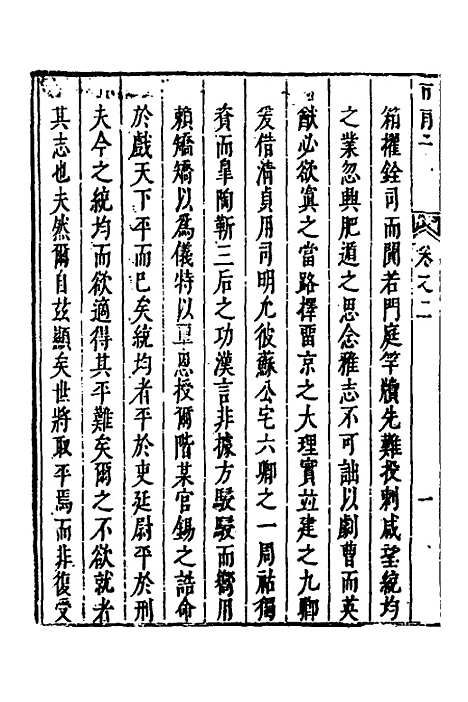 卷之二
一
箱櫂銓司而聞若門庭竿牘先難投刺咸望統均
之業忽興肥遁之思念雅志不可詘以劇曹而英
猷必欲寘之當路擇留京之大理實並建之九卿
爰借清貞用司明允彼蘇公宅六卿之一周祜獨
賚而皐陶靳三后之功漢言非據方駸駸而嚮用
賴矯矯以為儀特以覃恩授爾階某官錫之誥命
於戲天下平而已矣統均者平於吏延尉平於刑
夫今之統均而欲適得其平難矣爾之不欲就者
其志也夫然爾自茲顯矣世將取平焉而非復受